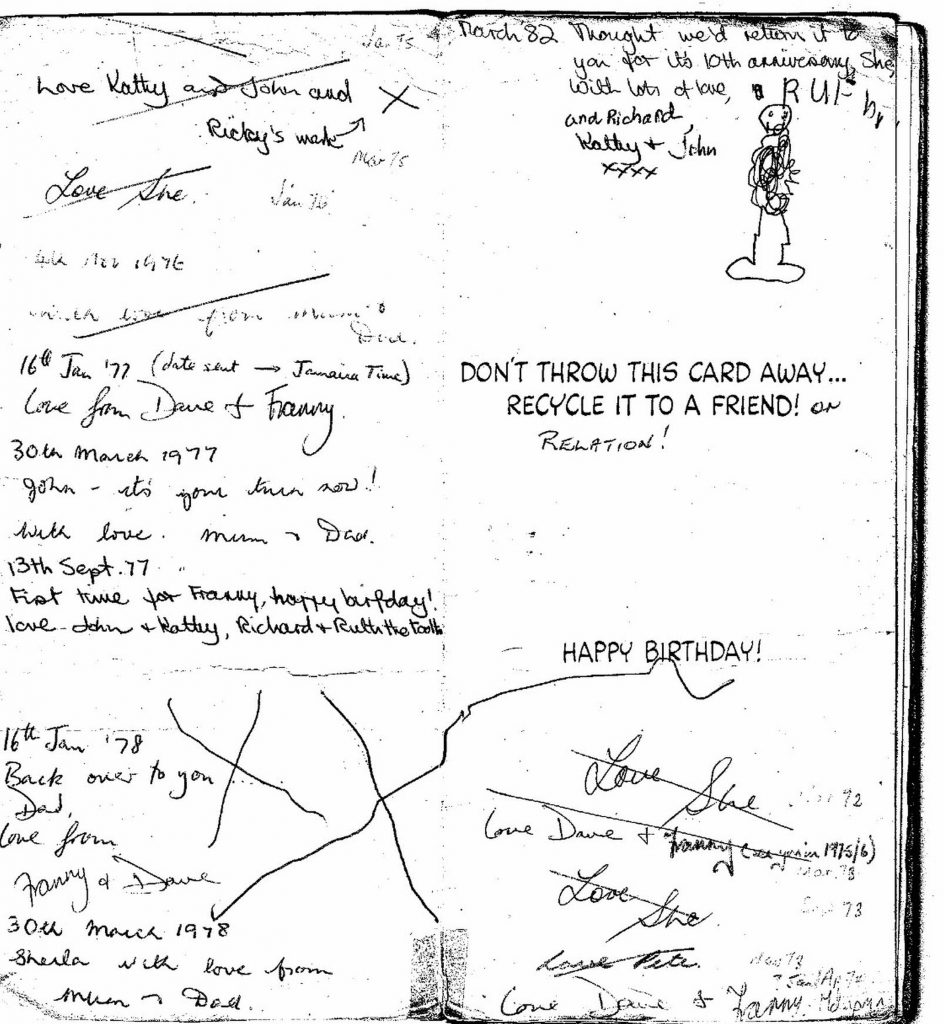 Jan 75
Love Kathy and John and X
Ricky's mark
Mar 75
Love She.
Jan 76
4th Nov 1976
with love from mum &
Dad.
16th Jan '77 (date sent → Jamaica Time)
Love from Dave & Franny.
30th March 1977
John - it's your turn now!
With love. Mum & Dad.
13th Sept. 77
First time for Franny, happy birfday!
love John & Kathy, Richard & Ruth the Tooth
16th Jan '78
Back over to you ....
Dad,
Love from
Franny & Dave
30th March 1978
Sheila with love from
Mum & Dad.
March 82 Thought we'd return it to
you for its 10th anniversary, She,
With lots of love,
and Richard,
Kathy & John
xxxx
DON'T THROW THIS CARD AWAY...
RECYCLE IT TO A FRIEND! OR
RELATION!
HAPPY BIRTHDAY!
Love
She
72
Love Dave & Franny (see again 1975/6)
Mar. 73
Love
She
Sept 73
Love Pete.
Nov 73
Love Dave & Franny.